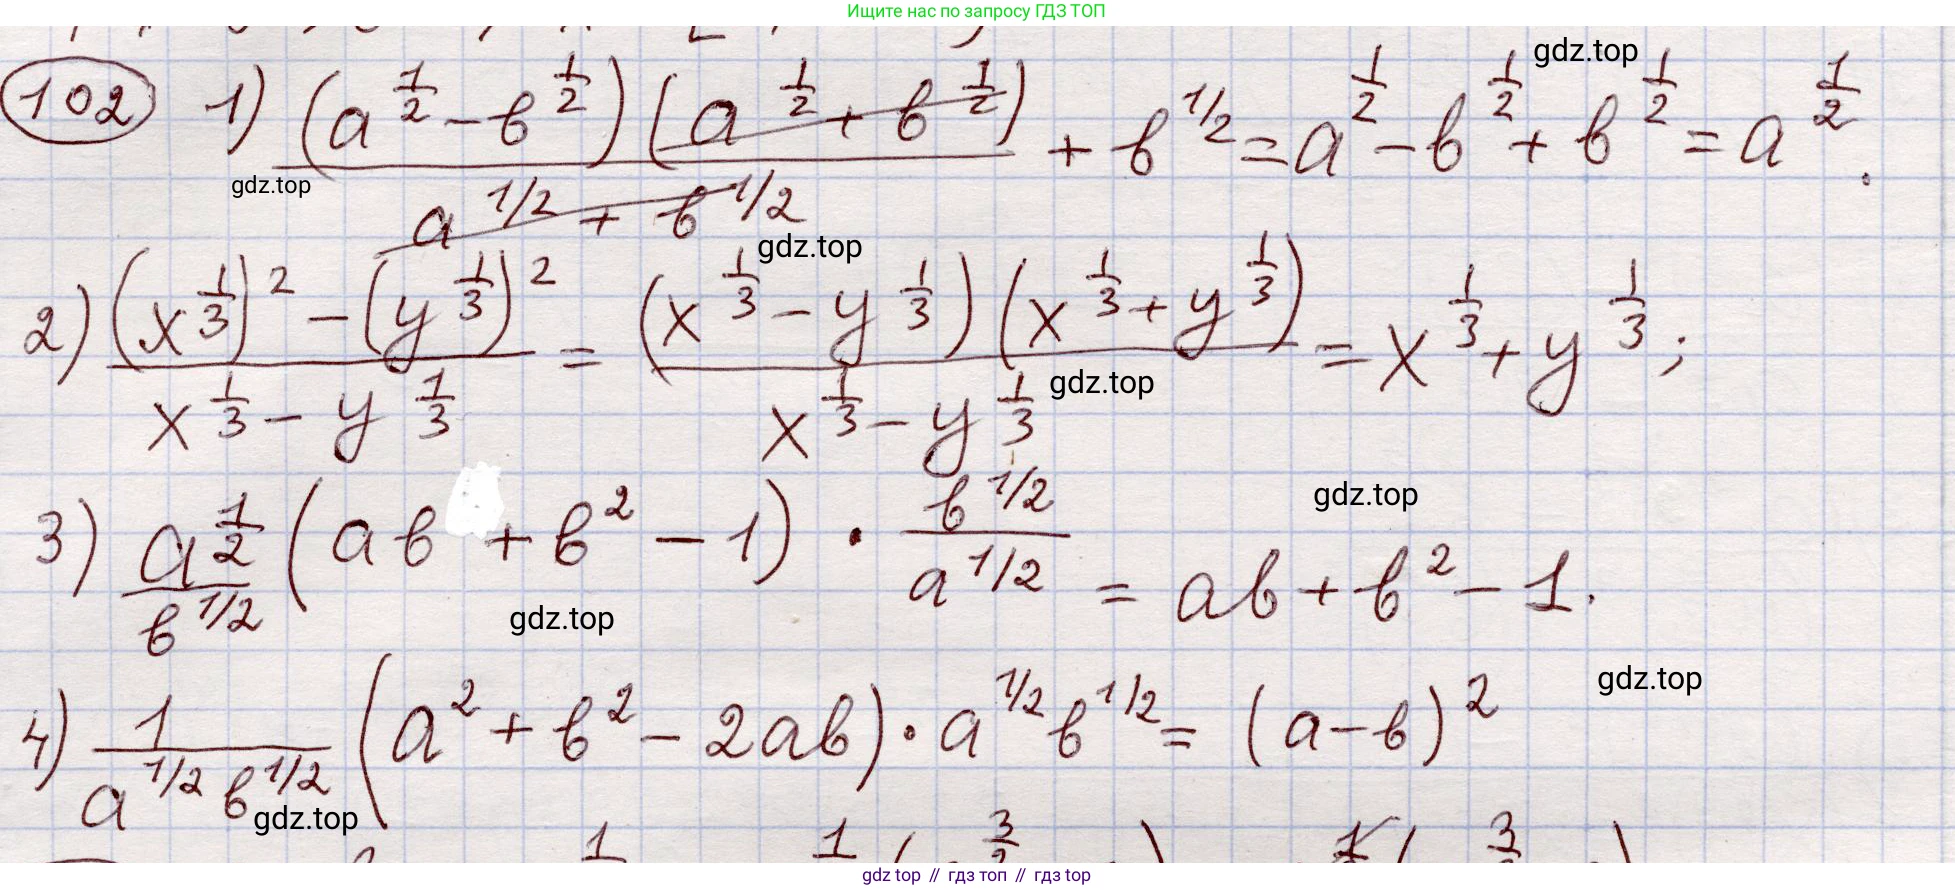 Ищите нас по запросу ГДЗ ТОП
gdz.top
102 1) (a^(1/2) - b^(1/2))(a^(1/2) + b^(1/2)) / (a^(1/2) + b^(1/2)) + b^(1/2) = a^(1/2) - b^(1/2) + b^(1/2) = a^(1/2).
gdz.top
gdz.top
2) ((x^(1/3))^2 - (y^(1/3))^2) / (x^(1/3) - y^(1/3)) = (x^(1/3) - y^(1/3))(x^(1/3) + y^(1/3)) / (x^(1/3) - y^(1/3)) = x^(1/3) + y^(1/3);
gdz.top
gdz.top
3) a^(1/2) / b^(1/2) (ab + b^2 - 1) · b^(1/2) / a^(1/2) = ab + b^2 - 1.
gdz.top
gdz.top
4) 1 / (a^(1/2) b^(1/2)) (a^2 + b^2 - 2ab) · a^(1/2) b^(1/2) = (a - b)^2
gdz.top
gdz top // гдз топ // гдз top